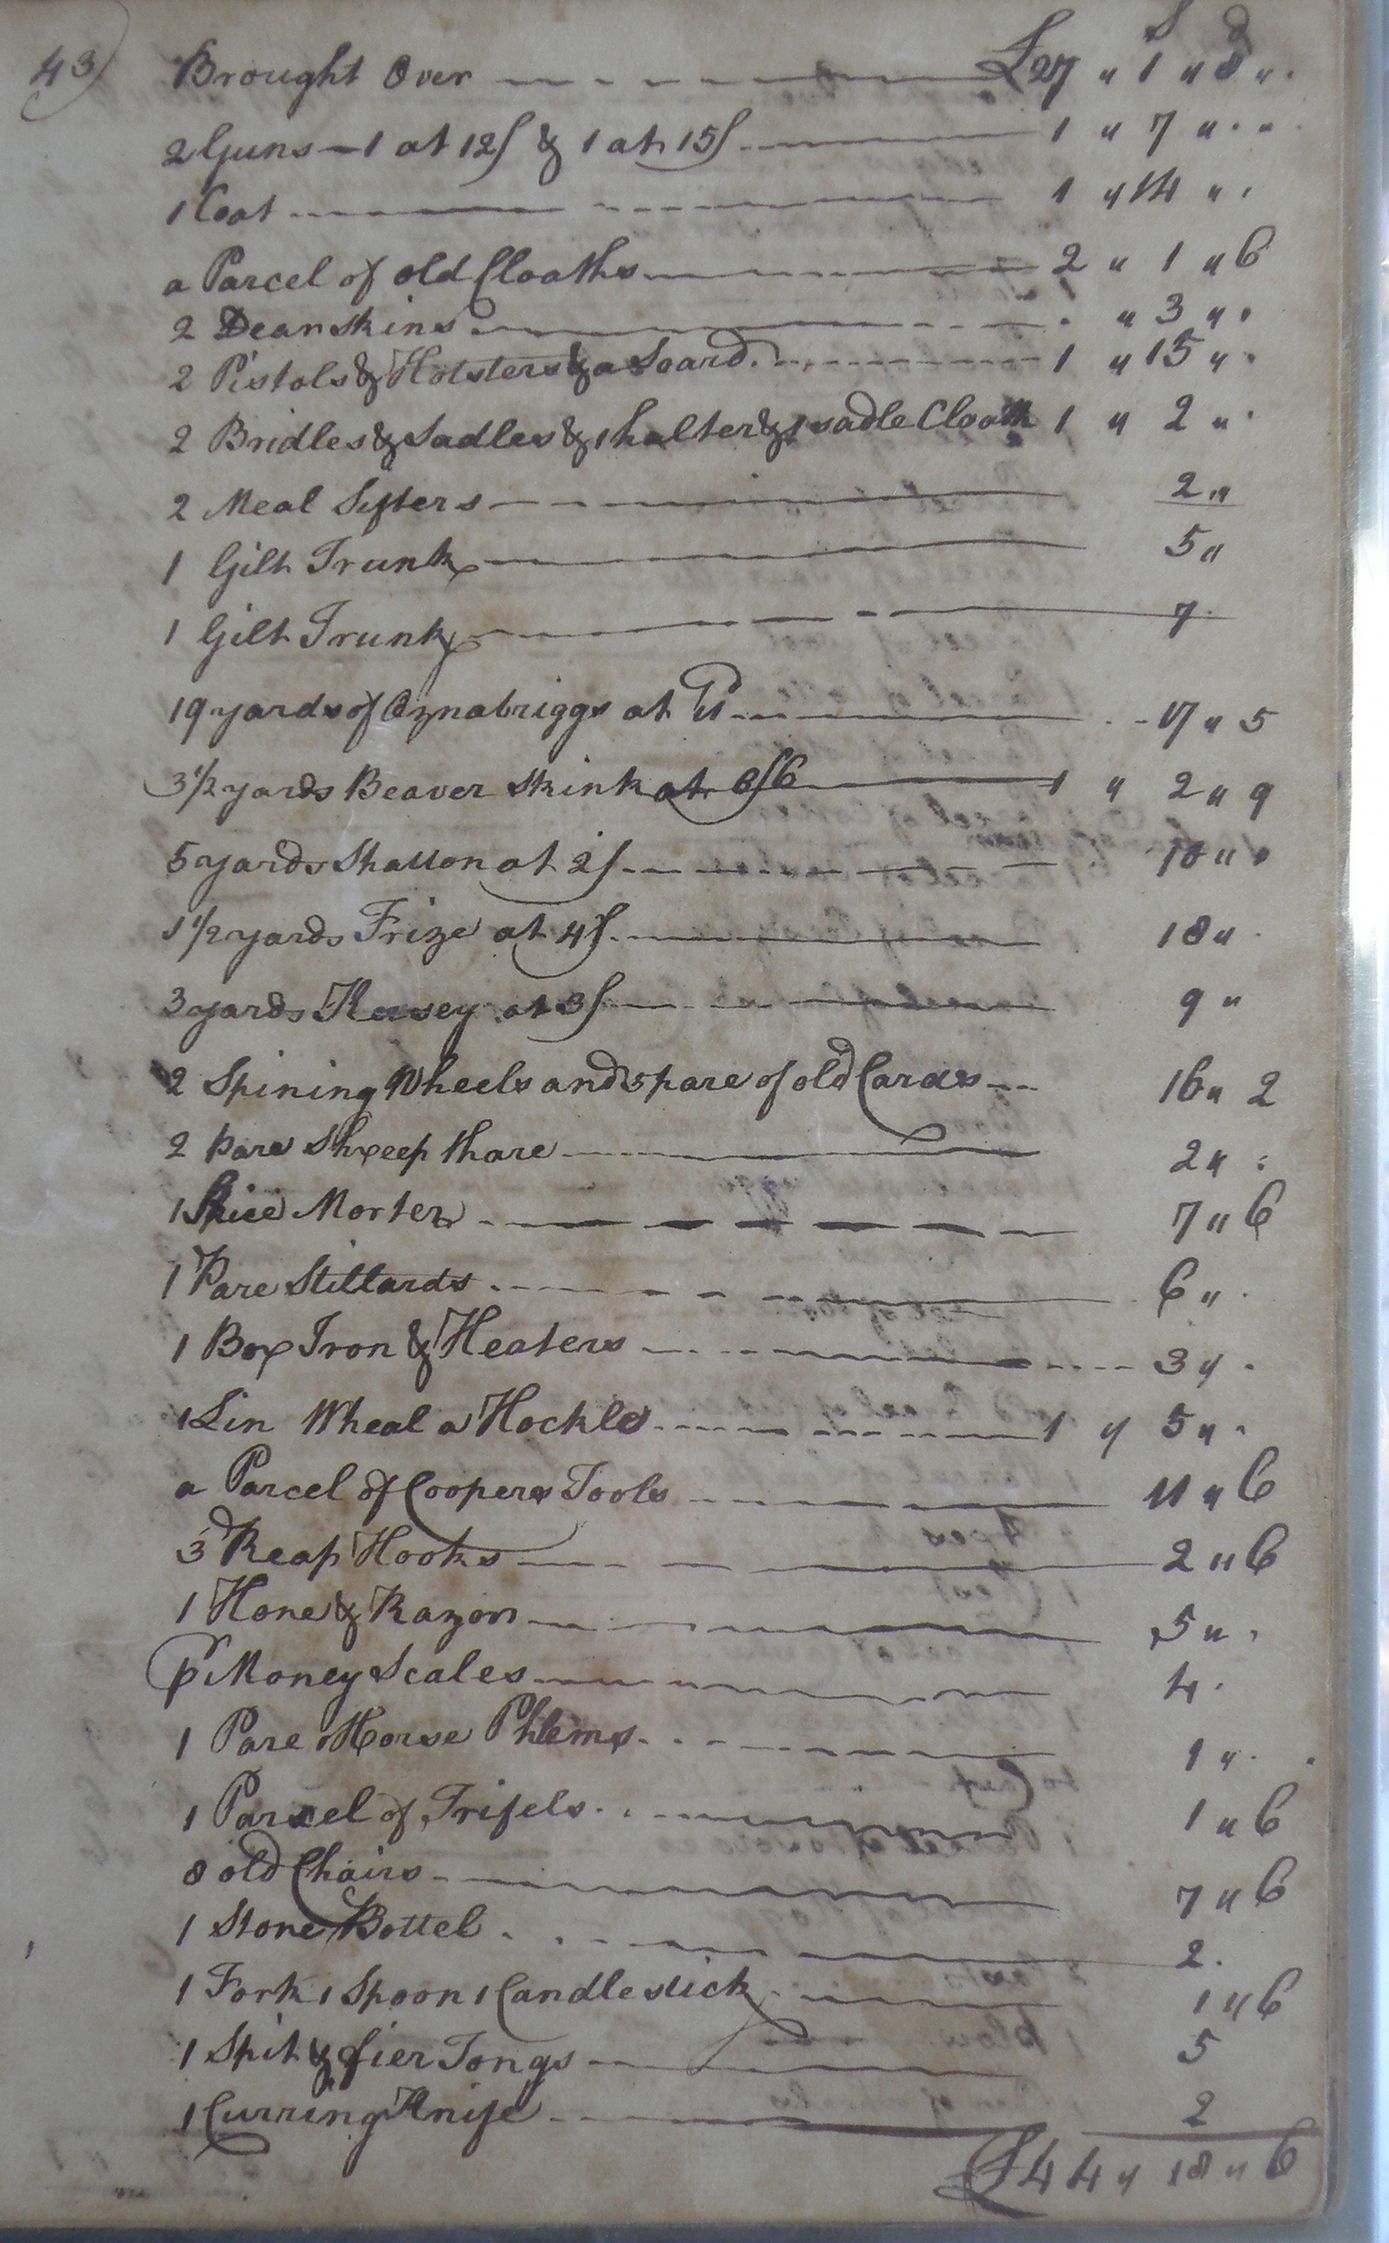 43) Brought Over £27 " 1 " 8 "
2 Guns - 1 at 12s & 1 at 15s 1 " 7 "
1 Coat 1 " 14 "
a Parcel of old Cloaths 2 " 1 " 6
2 Dear Skins " 3 "
2 Pistols & Holsters & a Soard 1 " 15 "
2 Bridles & Sadles & 1 halter & 1 sadle Cloath 1 " 2 "
2 Meal Sifters 2 "
1 Gilt Trunk 5 "
1 Gilt Trunk 7
19 yards of Oznabriggs at 17 " 5
3 1/2 yards Beaver Skink at 6/6 1 " 2 " 9
5 yards Shallon at 2s 10 "
1 1/2 yards Frize at 4s 18 "
3 yards Kersey at 3s 9 "
2 Spining Wheels and spare of old Cards 16 " 2
2 Pare Sheep Share 2 "
1 Spice Morter 7 " 6
1 Pare Stillards 6 "
1 Box Iron & Heaters 3 "
1 Lin Wheal a Hockle 1 " 5 "
a Parcel of Coopers Tools 11 " 6
3 Reap Hooks 2 " 6
1 Hone & Razor 5 "
pr Money Scales 4
1 Pare Horse Phlems 1 "
1 Parcel of Trifels 1 " 6
8 old Chairs 7 " 6
1 Stone Bottel 2
1 Fork 1 Spoon 1 Candlestick 1 " 6
1 Spit & fier Tongs 5
1 Curring Knife 2
£44 " 18 " 6